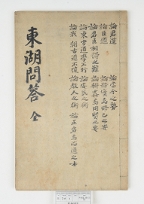 論君道
論臣道
論君臣相得之難
論東方道學不行
論我朝古道不復
論當今之勢
論務實爲修己之要
論辨姦爲用賢之要
論安民之術
論教人之術
論正名爲治道之本
東湖問答 全